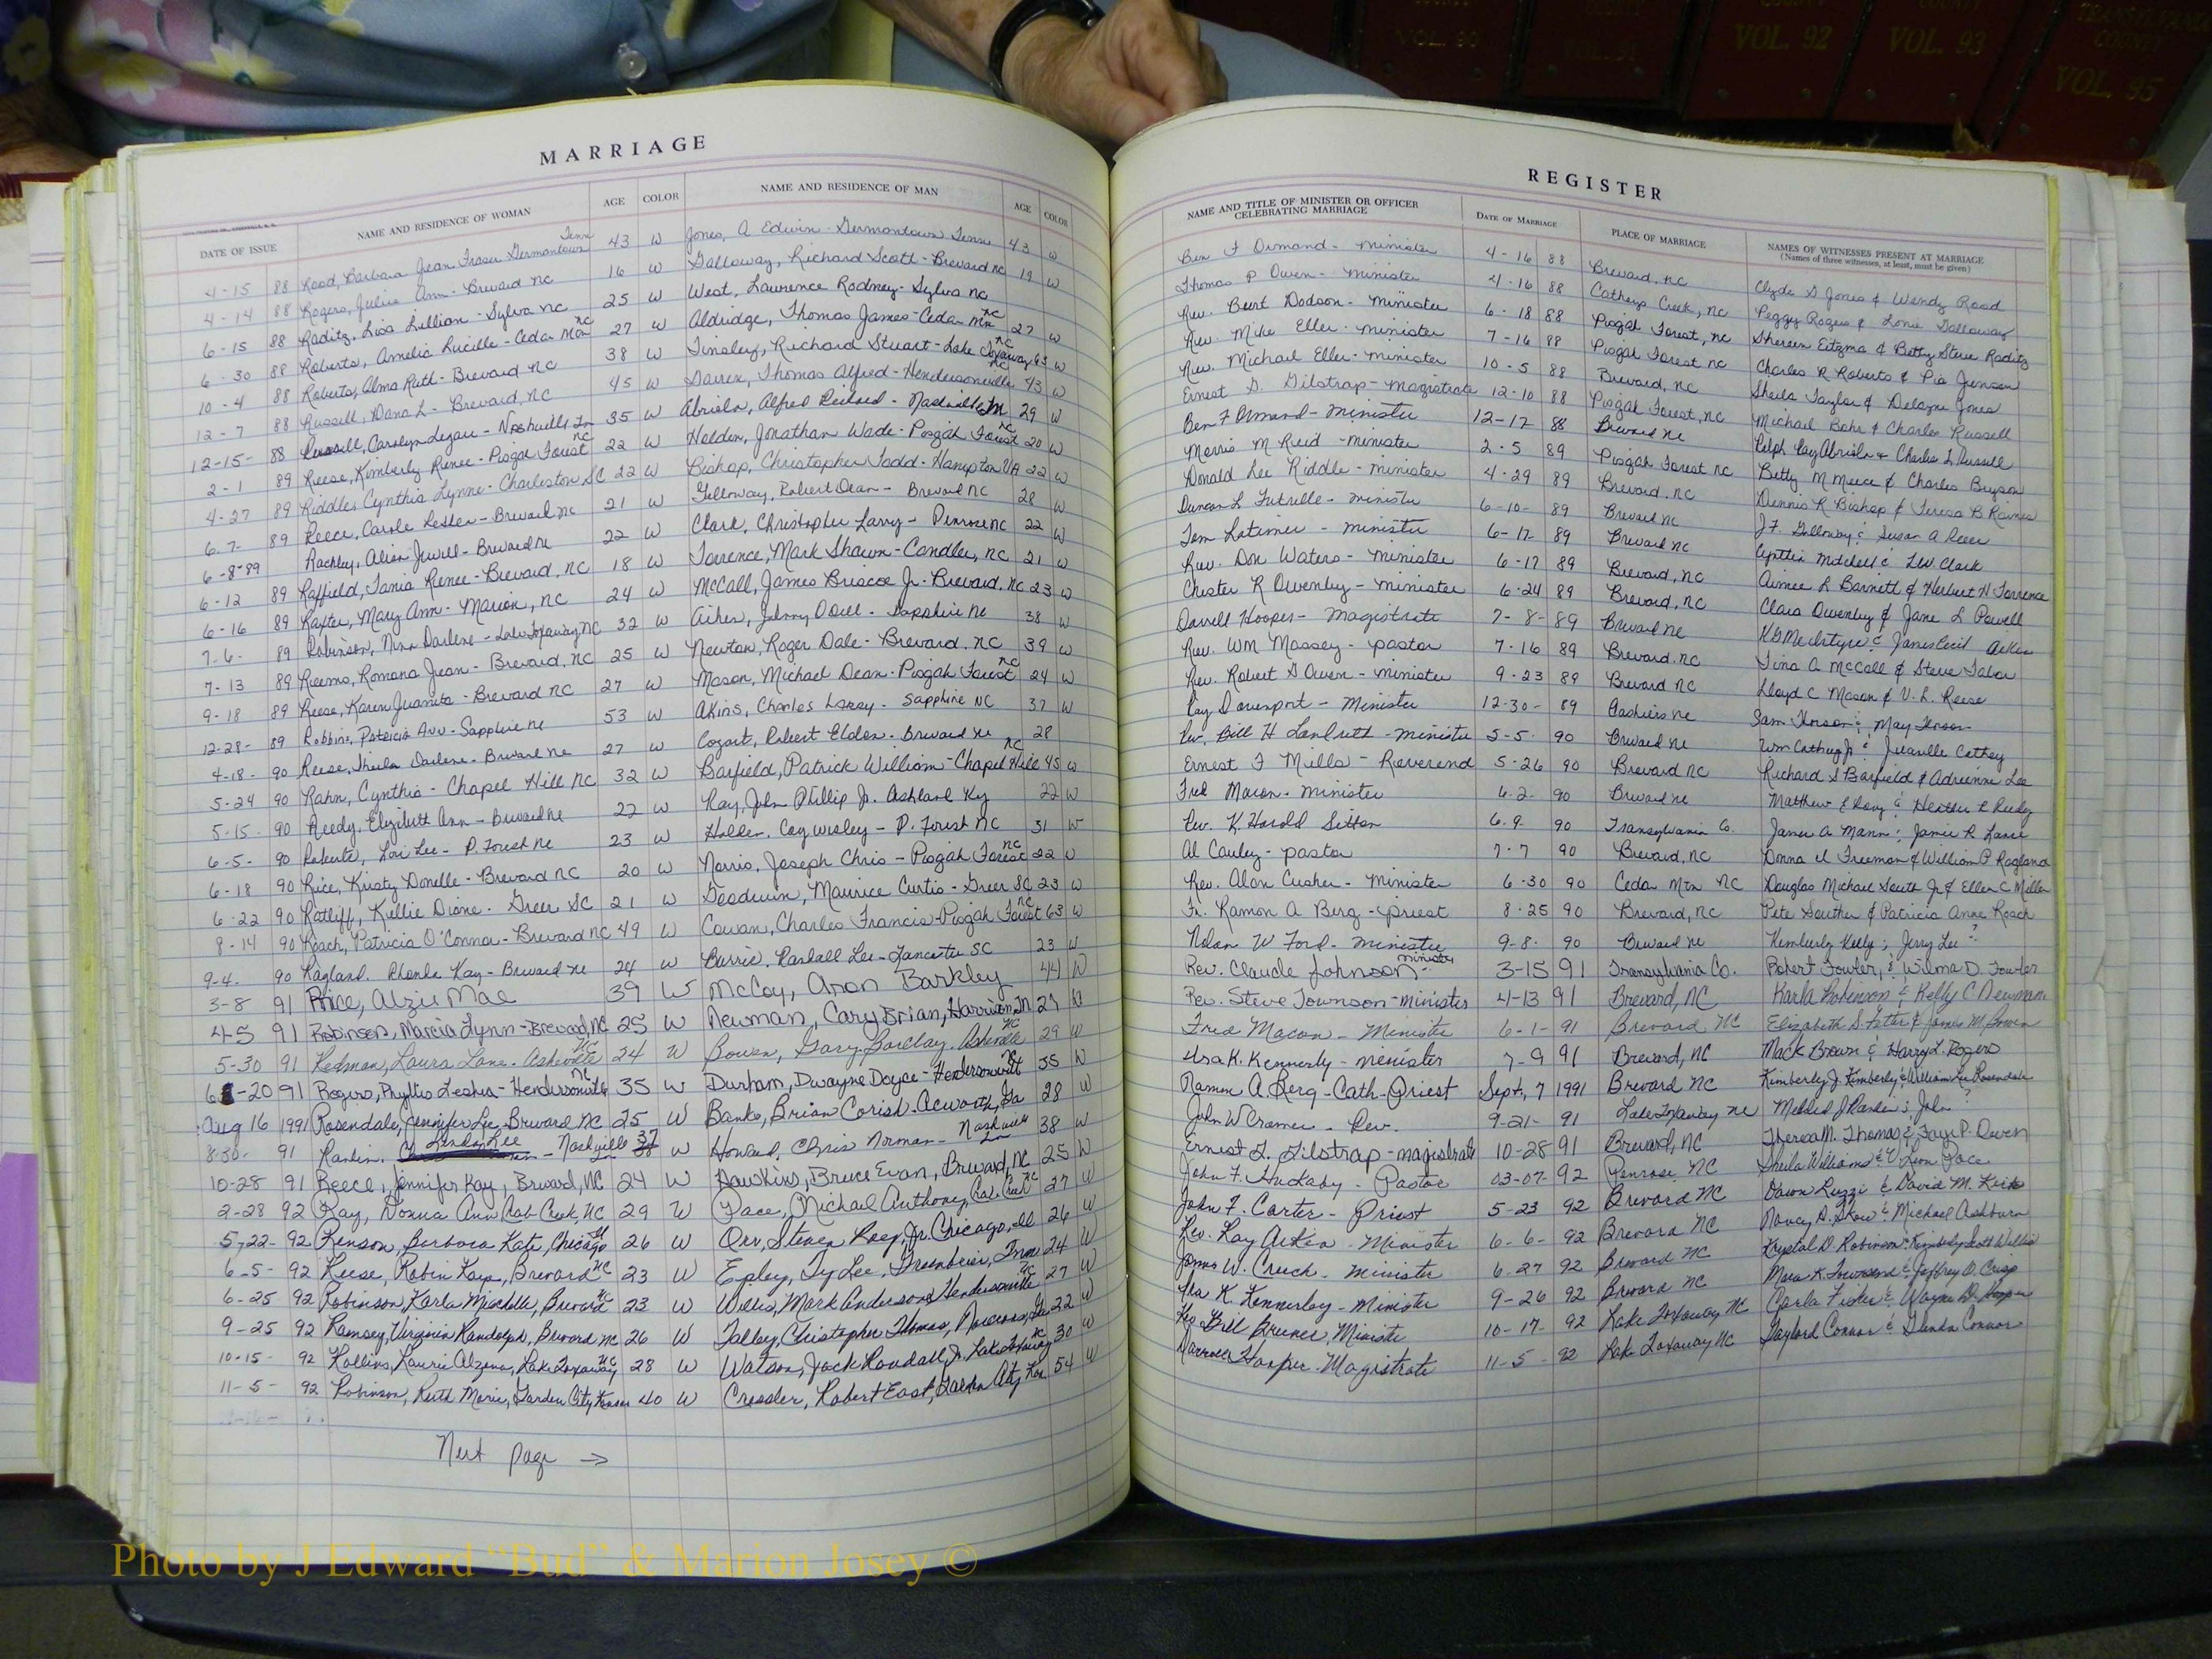 COUNTY
VOL. 90
VOL. 91
COUNTY
VOL. 92
COUNTY
VOL. 93
TRANSYLVANIA
COUNTY
VOL. 95
MARRIAGE
REGISTER
DATE OF ISSUE NAME AND RESIDENCE OF WOMAN AGE COLOR NAME AND RESIDENCE OF MAN AGE COLOR
NAME AND TITLE OF MINISTER OR OFFICER CELEBRATING MARRIAGE DATE OF MARRIAGE PLACE OF MARRIAGE NAMES OF WITNESSES PRESENT AT MARRIAGE
(Names of three witnesses, at least, must be given)
4-15 88 Rood, Barbara Jean Fraser Germantown Tenn 43 W Jones, A Edwin - Germantown Tenn 43 W Ben F Ormand - minister 4-16 88 Brevard, NC Clyde G Jones & Wendy Rood
4-14 88 Rogers, Julia Ann - Brevard NC 16 W Galloway, Richard Scott - Brevard NC 19 W Thomas P Owen - minister 4-16 88 Catheys Creek, NC Peggy Rogers & Lonie Galloway
6-15 88 Raditz, Lisa Lillian - Sylva NC 25 W West, Lawrence Rodney - Sylva NC Rev. Burt Dodson - minister 6-18 88 Pisgah Forest, NC Shereen Eitzma & Betty Steve Raditz
6-30 88 Roberts, Amelia Lucille - Cedar Mtn NC 27 W Aldridge, Thomas James - Cedar Mtn NC 27 W Rev. Mike Eller - minister 7-16 88 Pisgah Forest NC Charles R Roberts & Pia Jensen
10-4 88 Roberts, Alma Ruth - Brevard NC 38 W Tinsley, Richard Stuart - Lake Toxaway NC 63 W Rev. Michael Eller - minister 10-5 88 Brevard, NC Sheila Taylor & Delayne Jones
12-7 88 Russell, Dana L - Brevard, NC 45 W Thomas Alfred - Hendersonville NC 43 W Ernest G. Gilstrap - magistrate 12-10 88 Pisgah Forest, NC Michael Bahr & Charles Russell
12-15- 88 Russell, Carolyn Legau - Nashville Tn 35 W Abriola, Alfred Richard - Nashville Tn 29 W Ben F Ormand - minister 12-17 88 Brevard NC Ralph Ray Abriola & Charles L Russell
2-1 89 Reese, Kimberly Renee - Pisgah Forest NC 22 W Holden, Jonathan Wade - Pisgah Forest NC 20 W Morris M Reid - minister 2-5 89 Pisgah Forest NC Betty M Meece & Charles Bryson
4-27 89 Riddle, Cynthia Lynne - Charleston SC 22 W Bishop, Christopher Todd - Hampton VA 22 W Donald Lee Riddle - minister 4-29 89 Brevard, NC Dennis R Bishop & Teresa B Raines
6-7- 89 Reece, Carole Leslea - Brevard NC 21 W Galloway, Robert Dean - Brevard NC 28 W Duncan L Futrelle - minister 6-10- 89 Brevard NC J.F. Galloway & Susan A Reece
6-8-89 Rackley, Alisa Jewell - Brevard NC 22 W Clark, Christopher Larry - Penrose NC 22 W Tom Latimer - minister 6-17 89 Brevard NC Cynthia Mitchell & Clark
6-12 89 Raffield, Tania Renee - Brevard, NC 18 W Torrence, Mark Shawn - Candler, NC 21 W Rev. Don Waters - minister 6-17 89 Brevard, NC Aimee L Barnett & Herbert H Torrence
6-16 89 Raxter, Mary Ann - Marion, NC 24 W McCall, James Briscoe Jr. - Brevard, NC 23 W Chester R Owenby - minister 6-24 89 Brevard, NC Clara Owenby & Jane L Powell
7-6- 89 Robinson, Nina Darlene - Lake Toxaway NC 32 W Aiken, Johnny Odell - Sapphire NC 38 W Darrell Hooper - magistrate 7-8-89 Brevard NC KG McIntyre & James Cecil Aiken
7-13 89 Reems, Romana Jean - Brevard, NC 25 W Newton, Roger Dale - Brevard, NC 39 W Rev. Wm Massey - pastor 7-16 89 Brevard, NC Tina A McCall & Steve Tabor
9-18 89 Reese, Karen Juanita - Brevard NC 27 W Mason, Michael Dean - Pisgah Forest NC 24 W Rev. Robert G Owen - minister 9-23 89 Brevard NC Lloyd C Mason & V. L. Reese
12-28- 89 Robbins, Patricia Ann - Sapphire NC 53 W Akins, Charles Leroy - Sapphire NC 37 W Ray Davenport - Minister 12-30- 89 Cashiers NC
4-18- 90 Reese, Sheila Darlene - Brevard NC 27 W Cogart, Robert Elden - Brevard NC 28 Rev. Bill H Landreth - minister 5-5- 90 Brevard NC Wm Cathey Jr & Cathey
5-24 90 Rahn, Cynthia - Chapel Hill NC 32 W Barfield, Patrick William - Chapel Hill NC 45 W Ernest F Mills - Reverend 5-26 90 Brevard NC Richard S Barfield & Adrienne Lee
5-15- 90 Reedy, Elizabeth Ann - Brevard NC 22 W Ray, John Phillip Jr. Ashland Ky 22 W Fred Macon - minister 6-2- 90 Brevard NC Matthew E Ray & Heather L Reedy
6-5- 90 Roberts, Lori Lee - P. Forest NC 23 W Holden, Coy Wesley - P. Forest NC 31 W Rev. K. Harold Sitton 6-9 90 Transylvania Co. James A Mann & Jamie R Lance
6-18 90 Rice, Kirsty Donelle - Brevard NC 20 W Norris, Joseph Chris - Pisgah Forest NC 22 W Al Cauley - pastor 7-7 90 Brevard, NC Donna U Freeman & William P Ragland
6-22 90 Ratliff, Kellie Diane - Greer SC 21 W Goodwin, Maurice Curtis - Greer SC 23 W Rev. Alan Cusher - minister 6-30 90 Cedar Mtn NC Douglas Michael South Jr & Ellen C Miller
8-14 90 Roach, Patricia O'Connor - Brevard NC 49 W Cowan, Charles Francis - Pisgah Forest NC 63 W Fr. Ramon A Berg - priest 8-25 90 Brevard, NC Pete Souther & Patricia Anne Roach
9-4- 90 Ragland, Rhonda Kay - Brevard NC 24 W Currie, Randall Lee - Lancaster SC 23 W Nolan W Ford - minister 9-8- 90 Brevard NC Kimberly Kelly & Jerry Lee ?
3-8 91 Price, Alzie Mae 39 W McCoy, Aron Barkley 44 W Rev. Claude Johnson - minister 3-15 91 Transylvania Co. Robert Fowler, & Wilma D. Fowler
4-5 91 Robinson, Marcia Lynn - Brevard, NC 25 W Newman, Cary Brian, Harrison Tn 27 W Rev. Steve Townson - minister 4-13 91 Brevard, NC Karla Robinson & Kelly C Newman
5-30 91 Redman, Laura Lane - Asheville NC 24 W Bowen, Gary Barclay - Asheville NC 29 W Fred Macon - Minister 6-1-91 Brevard NC Elizabeth S. & James M Bowen
6-20 91 Rogers, Phyllis Leshia - Hendersonville NC 35 W Durham, Dwayne Doyce - Hendersonville NC 35 W Ira K. Kennerly - minister 7-9 91 Brevard, NC Mack Brown & Harry L. Rogers
Aug 16 1991 Rosendale, Jennifer Lee, Brevard NC 25 W Banks, Brian Corish - Acworth, Ga 28 W Ramon A. Berg - Cath - Priest Sept. 7 1991 Brevard NC Kimberly J. Kimberly & William Lee Rosendale
8-30- 91 Rankin, Linda Lee - Nashville 37 W Howard, Chris Norman - Nashville Tn 38 W John W Cramer - Rev. 9-21- 91 Lake Toxaway NC Mildred J Rankin & John ?
10-28 91 Reece, Jennifer Kay, Brevard, NC 24 W Hawkins, Bruce Evan, Brevard, NC 25 W Ernest L. Gilstrap - magistrate 10-28 91 Brevard, NC Theresa M. Thomas & Faye P. Owen
2-28 92 Ray, Donna Ann Crab Creek, NC 29 W Pace, Michael Anthony, Crab Creek NC 27 W John F. Huckaby - Pastor 03-07-92 Penrose NC Sheila Williams & V. Leon Pace
5-22- 92 Renson, Barbara Kate, Chicago Ill 26 W Orr, Steven Roep, Jr. Chicago, Ill 26 W John F. Carter - Priest 5-23 92 Brevard NC Dawn Luzzi & David M. Keith
6-5- 92 Reese, Robin Kaye, Brevard NC 23 W Epley, Ty Lee, Greenbrier, Tenn 24 W Rev. Ray Aiken - Minister 6-6- 92 Brevard NC Nancy D. Skow & Michael Ashburn
6-25 92 Robinson, Karla Mischelle, Brevard NC 23 W Willis, Mark Anderson, Hendersonville NC 27 W James W. Creech - minister 6-27 92 Brevard NC Krystal D. Robinson & Kimberly Scott Willis
9-25 92 Ramsey, Virginia Randolph, Brevard NC 26 W Talley, Christopher Thomas, Norcross, Ga 22 W Ira K. Kennerley - Minister 9-26 92 Brevard NC Mara K. Townsend & Jeffrey O. Crisp
10-15- 92 Rollins, Laurie Alzena, Lake Toxaway NC 28 W Watson, Jack Randall Jr. Lake Toxaway NC 30 W Rev Bill Bruner, Minister 10-17- 92 Lake Toxaway NC Carla Fisher & Wayne D.
11-5- 92 Robinson, Ruth Marie, Garden City Kansas 40 W Cressler, Robert East, Garden City Kan 54 W Hooper - Magistrate 11-5- 92 Lake Toxaway NC Gaylord Connor & Connor
Next page →
Photo by J Edward “Bud” & Marion Josey ©